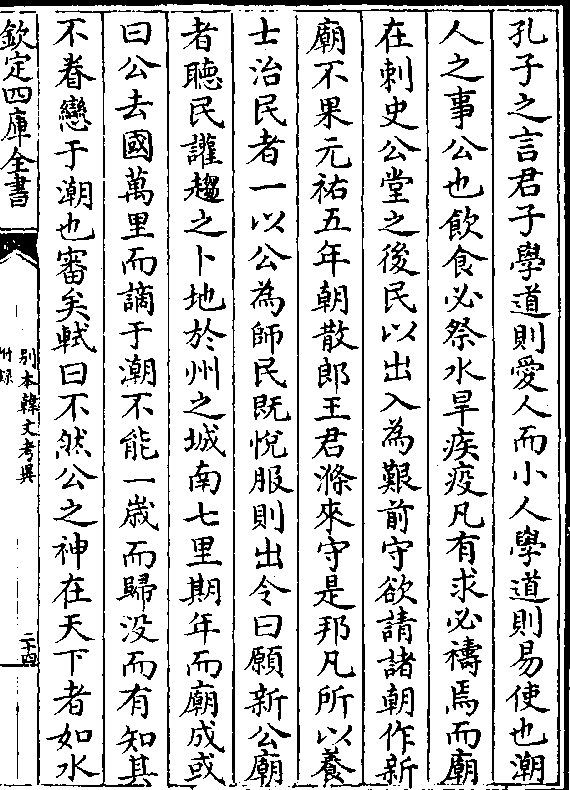 孔子之言君子學道則愛人而小人學道則易使也潮
人之事公也飲食必祭水旱疾疫凡有求必禱焉而廟
在刺史公堂之後民以出入為艱前守欲請諸朝作新
廟不果元祐五年朝散郎王君滌來守是邦凡所以養
士治民者一以公為師民既悅服則出令曰願新公廟
者聽民讙趨之卜地於州之城南七里期年而廟成或
曰公去國萬里而謫于潮不能一歲而歸没而有知其
不眷戀于潮也審矣軾曰不然公之神在天下者如水
欽定四庫全書
别本韓文考異
附録
二十四